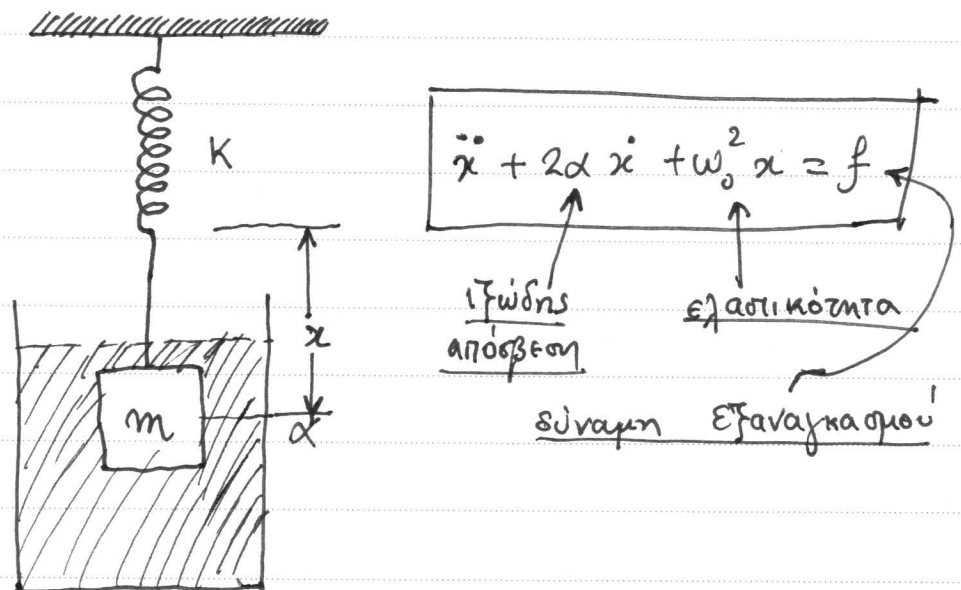 K
ẍ + 2α ẋ + ω₀² x = f
ιξώδης
απόσβεση
ελαστικότητα
x
m
α
δύναμη εξαναγκασμού